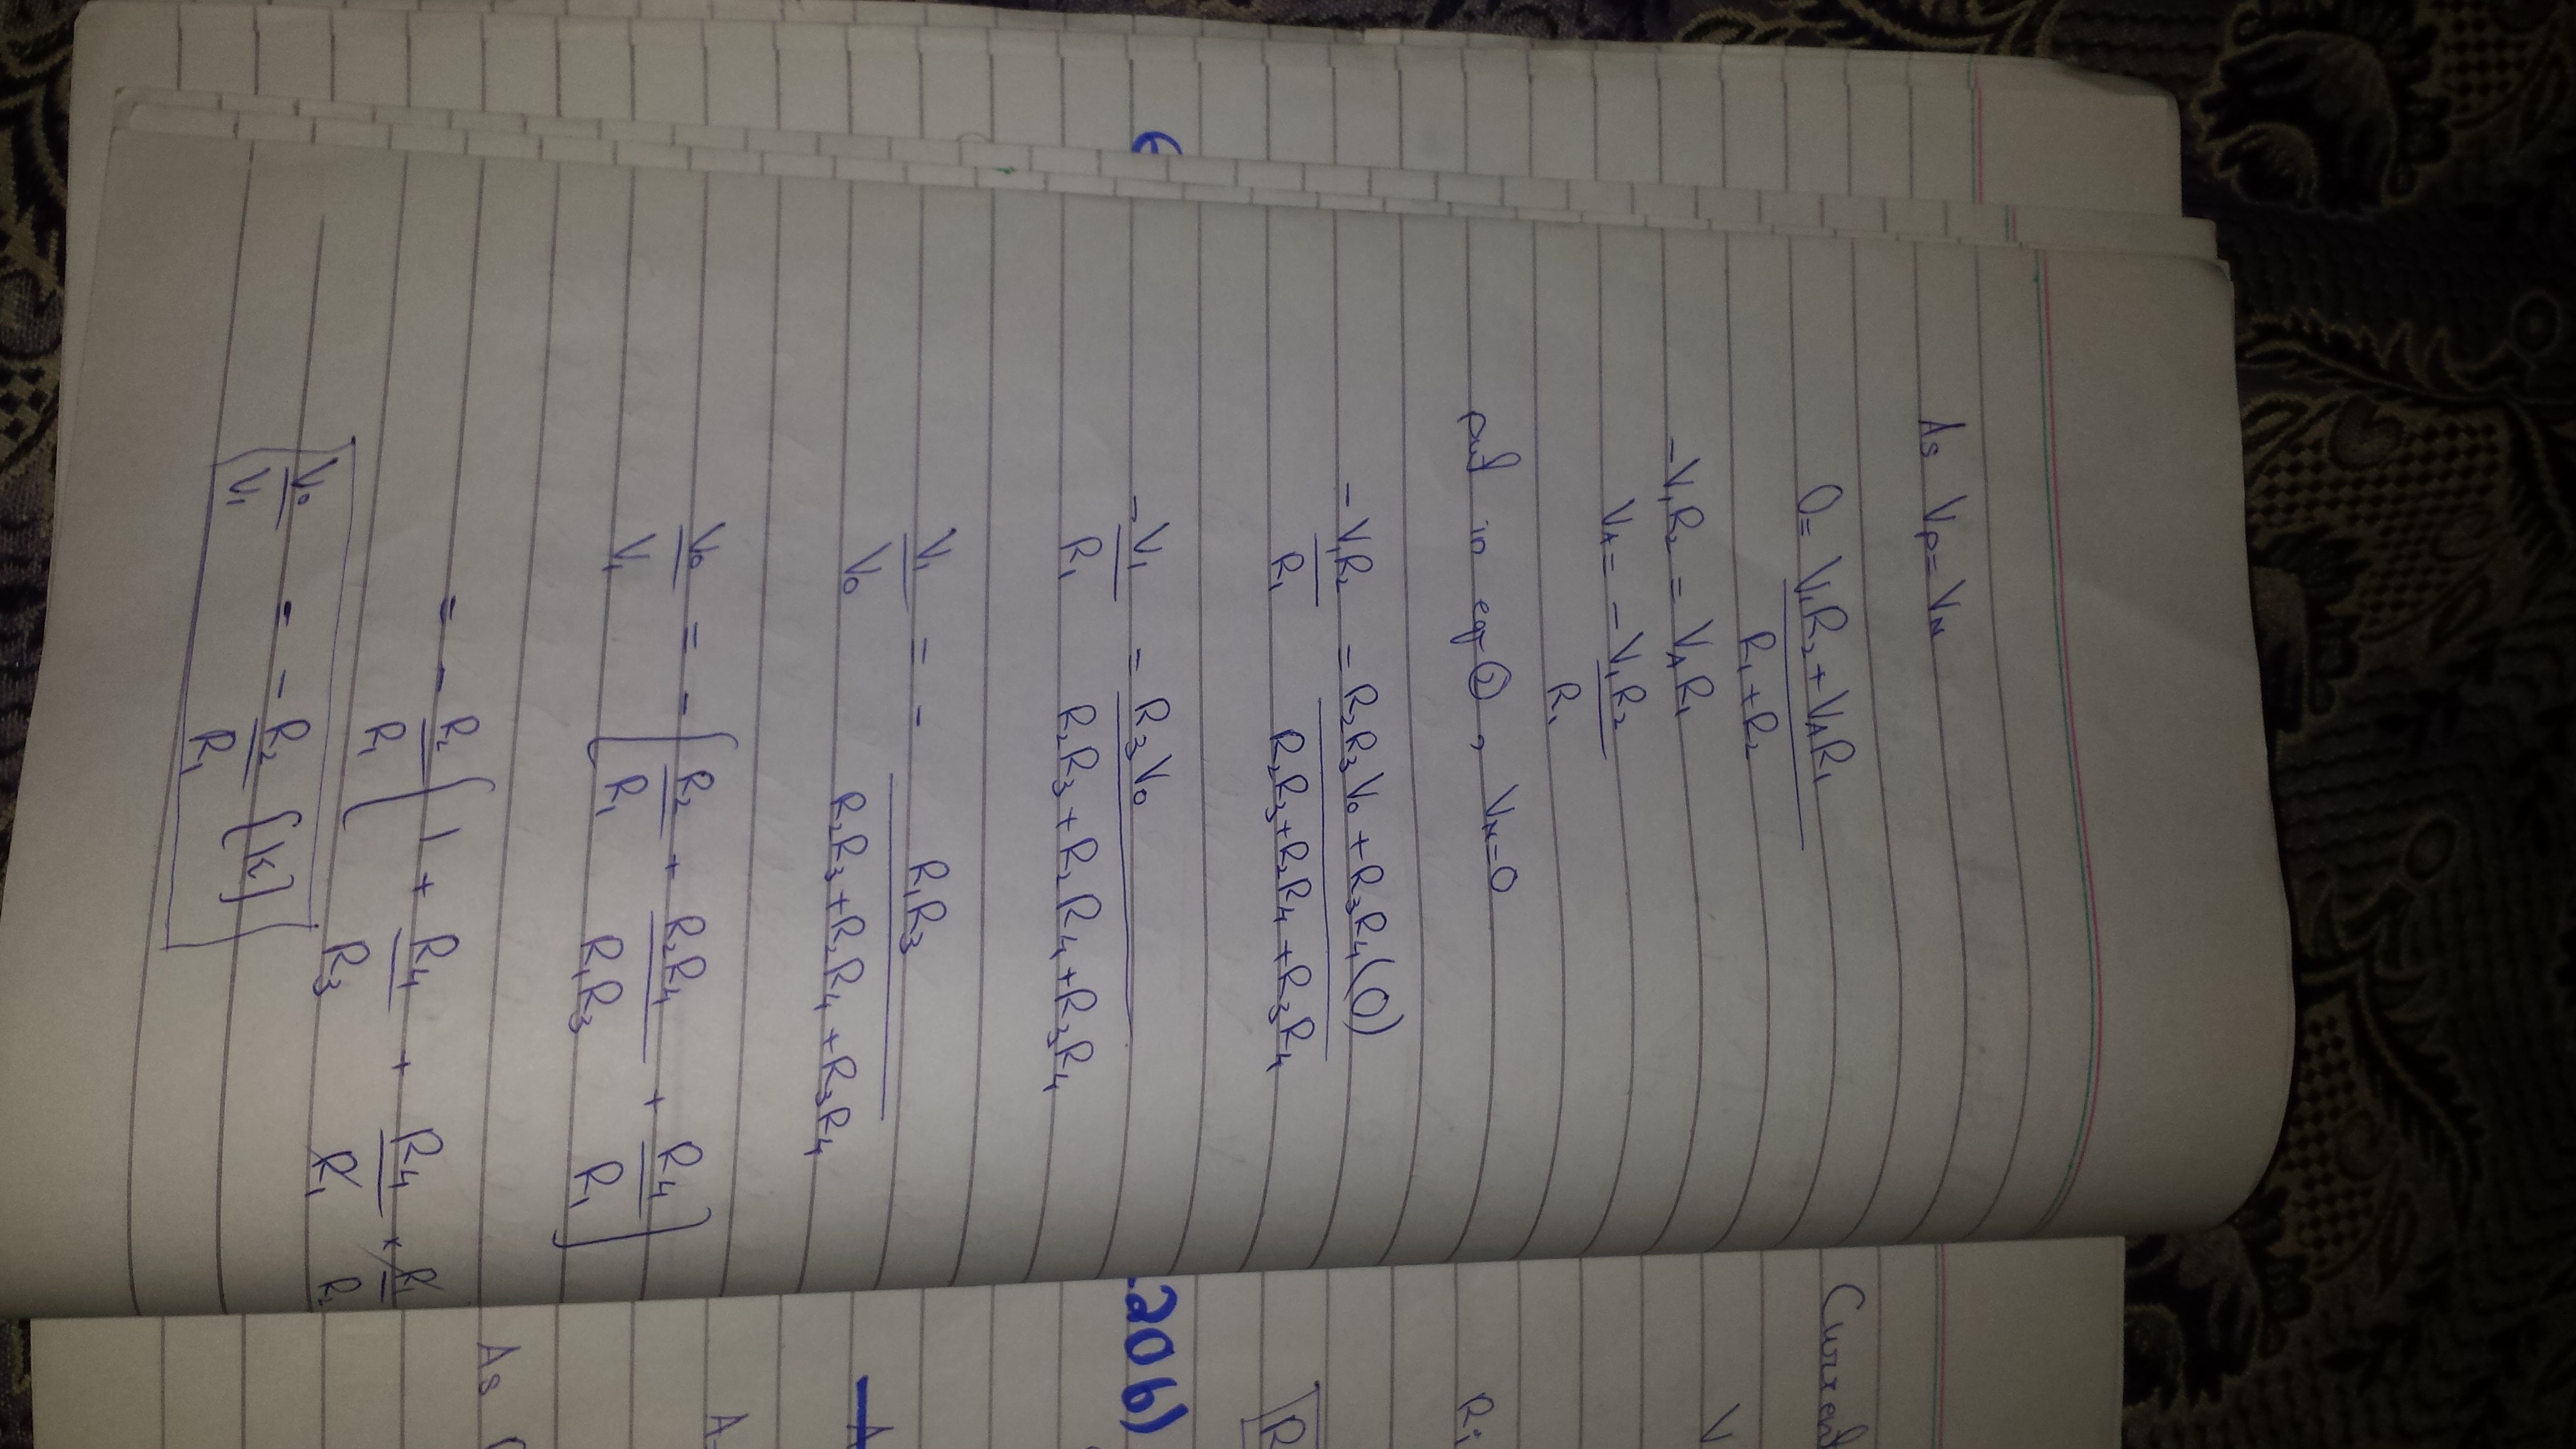 As Vp = VN
0 = V1R2 + VAR1
R1 + R2
-V1R2 = VAR1
VA = -V1R2
R1
put in eq ②, VN = 0
-V1R2 = R2R3V0 + R3R4(0)
R1 R2R3 + R2R4 + R3R4
-V1 = R3V0
R1 R2R3 + R2R4 + R3R4
V1 = - R1R3
V0 R2R3 + R2R4 + R3R4
V0 = - [R2 + R2R4 + R4]
V1 R1 R1R3 R1
= - R2 [1 + R4 + R4 × R1
R1 R3 R1 R2
V0 = - R2 [K]
V1 R1
Current
V
Ri
[R
206)
A
A
As